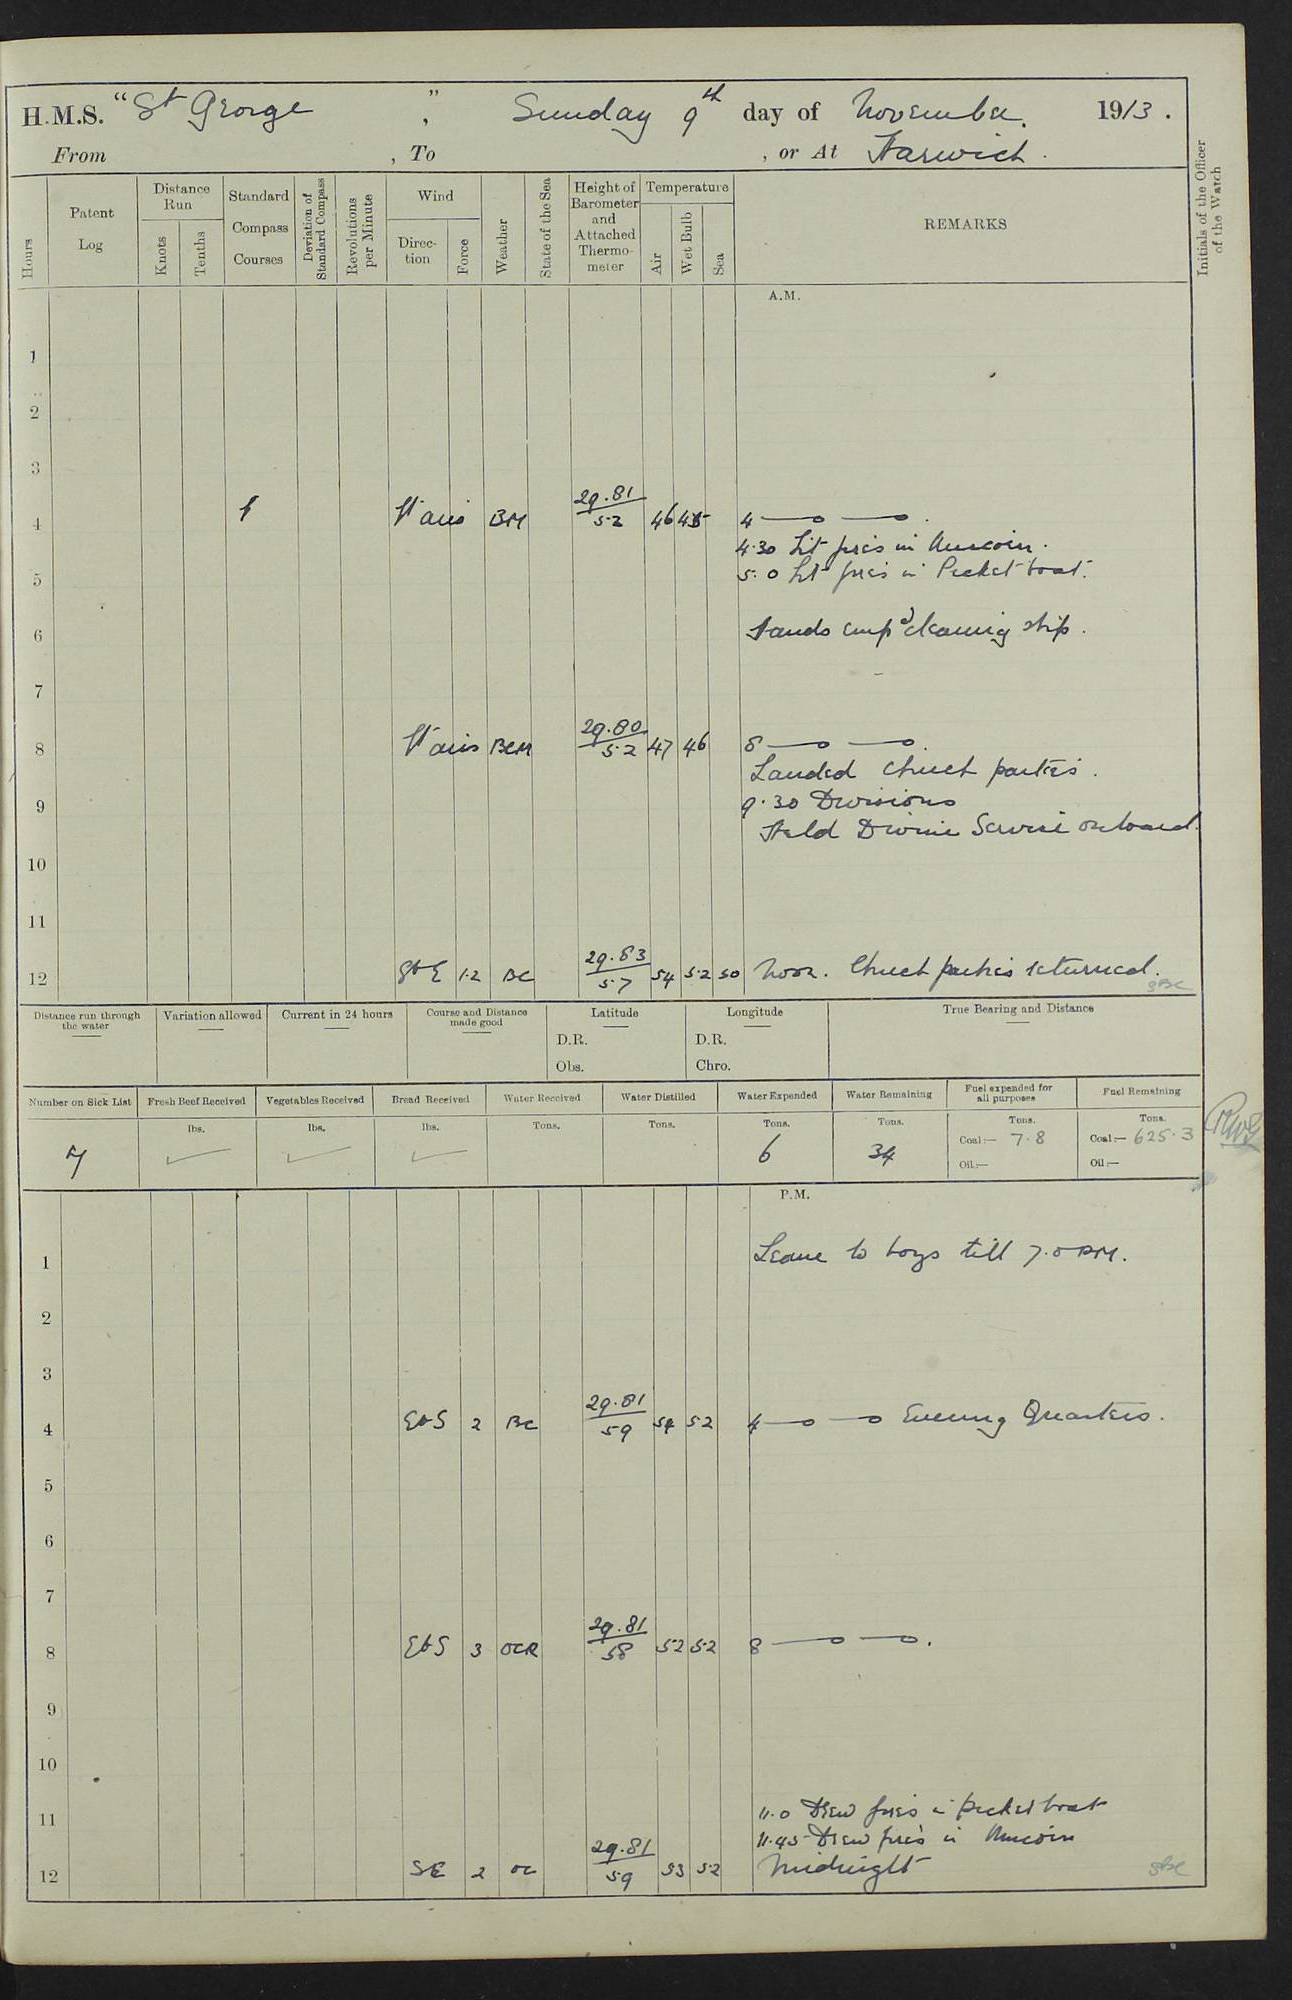 H.M.S. "St George", Sunday 9th day of November. 1913.
From , To , or At Harwich.
Hours
Patent Log
Distance Run
Knots
Tenths
Standard Compass Courses
Deviation of Standard Compass
Revolutions per Minute
Wind
Direction
Force
Weather
State of the Sea
Height of Barometer and Attached Thermometer
Temperature
Air
Wet Bulb
Sea
REMARKS
Initials of the Officer of the Watch
A.M.
1
2
3
4 Var's BM 29.81 52 46 45 4
4.30 Lit fires in
5.0 Lit fires in Picket boat.
5
6 Hands emp'd cleaning ship.
7
8 Var's BCM 29.80 52 47 46 8
Landed church parties.
9 9.30 Divisions
Held Divine Service onboard.
10
11
12 SbE 1.2 BC 29.83 57 54 52 50 Noon. Church parties returned.
Distance run through the water
Variation allowed
Current in 24 hours
Course and Distance made good
Latitude
D.R.
Obs.
Longitude
D.R.
Chro.
True Bearing and Distance
Number on Sick List
Fresh Beef Received
Vegetables Received
Bread Received
Water Received
Water Distilled
Water Expended
Water Remaining
Fuel expended for all purposes
Fuel Remaining
lbs. lbs. lbs. Tons. Tons. Tons. Tons. Tons. Tons.
7 6 34 Coal:— 7.8 Coal:— 625.3
Oil:— Oil:—
P.M.
1 Leave to boys till 7.0 PM.
2
3
4 EbS 2 BC 29.81 59 54 52 4 Evening Quarters.
5
6
7
8 EbS 3 OCR 29.81 58 52 52 8
9
10
11 11.0 Drew fires in picket boat
11.45 Drew fires in
12 SE 2 OC 29.81 59 53 52 Midnight